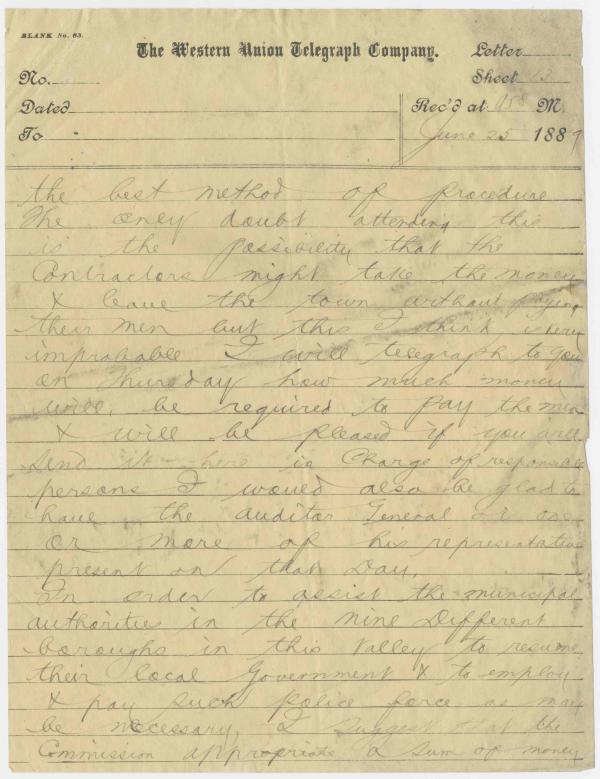 BLANK No. 53.
The Western Union Telegraph Company.
Letter
No.
Sheet 13
Dated
Rec'd at 158 M.
To
June 25 1889
the best method of procedure
The only doubt attending this
is the possibility that the
Contractors might take the money
& leave the town without paying
their men but this I think is very
improbable I will telegraph to you
on Thursday how much money
will, be required to pay the men
& will be pleased if you will
send it here in Charge of responsible
persons I would also be glad to
have the auditor General or one
or more of his representatives
present on that Day.
In order to assist the municipal
authorities in the nine Different
boroughs in this Valley to resume
their local Government & to employ
& pay such police force as may
be necessary, I suggest that the
Commission appropriate a sum of money